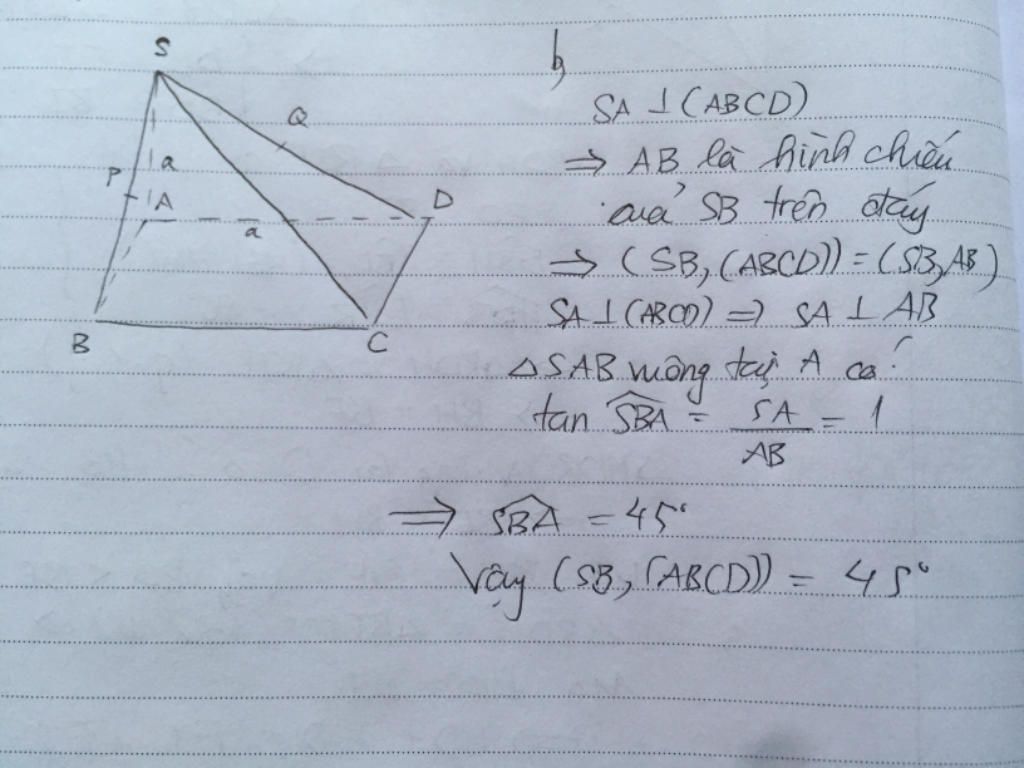 S
Q
a
P
A
D
a
B
C
b,
SA ⊥ (ABCD)
⇒ AB là hình chiếu
của SB trên đáy
⇒ (SB, (ABCD)) = (SB, AB)
SA ⊥ (ABCD) ⇒ SA ⊥ AB
△ SAB vuông tại A có:
tan \widehat{SBA} = \frac{SA}{AB} = 1
⇒ \widehat{SBA} = 45°
Vậy (SB, (ABCD)) = 45°